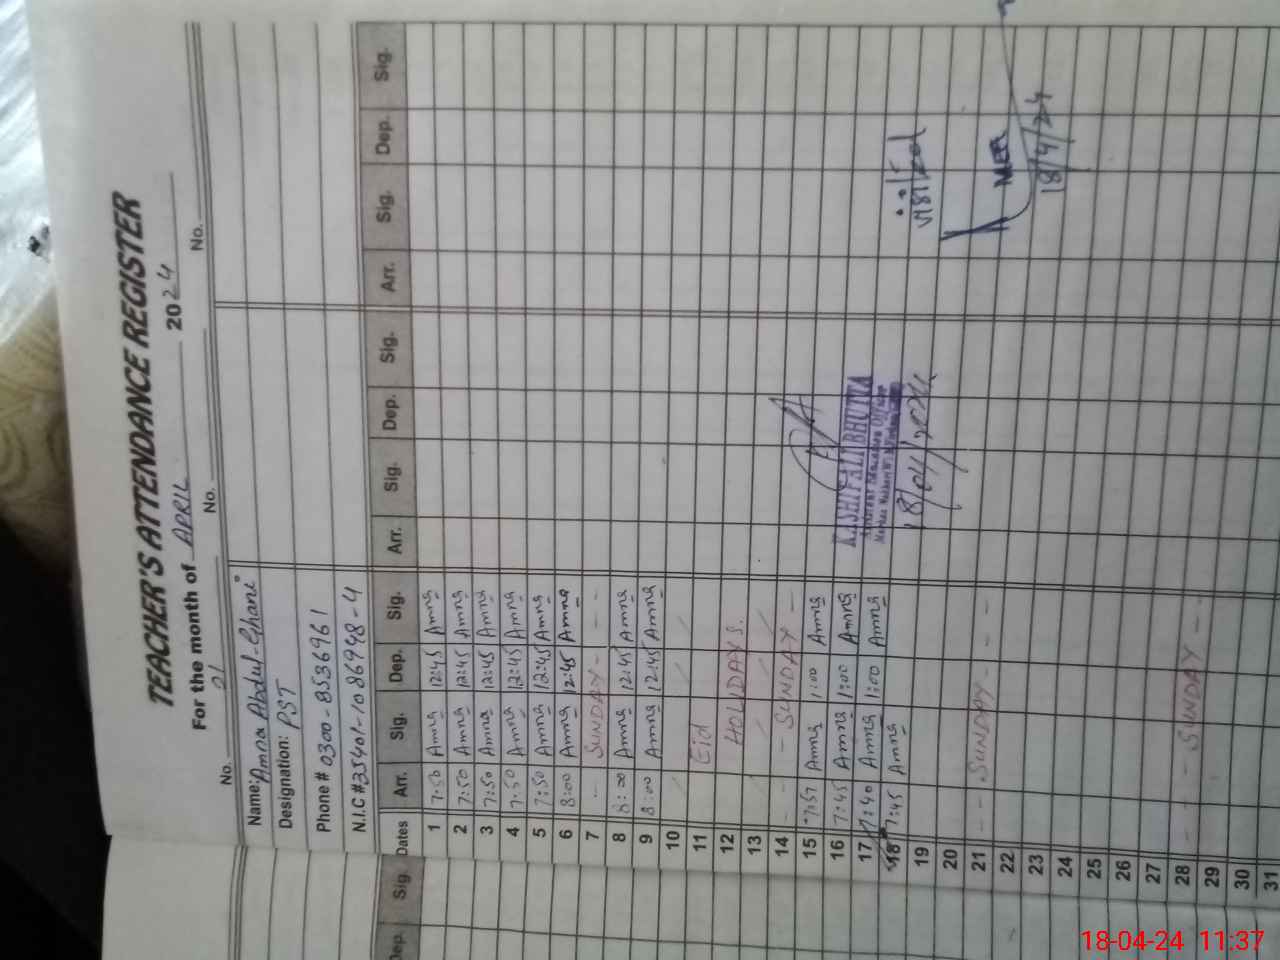 TEACHER'S ATTENDANCE REGISTER
For the month of APRIL 2024
No. 21 No. No.
Name: Amna Abdul-Ghani
Designation: PST
Phone # 0300-8536961
N.I.C # 35401-1086948-4
Dates Arr. Sig. Dep. Sig. Arr. Sig. Dep. Sig. Arr. Sig. Dep. Sig.
1 7:50 Amna 12:45 Amna
2 7:50 Amna 12:45 Amna
3 7:50 Amna 12:45 Amna
4 7:50 Amna 12:45 Amna
5 7:50 Amna 12:45 Amna
6 8:00 Amna 12:45 Amna
7 SUNDAY
8 8:00 Amna 12:45 Amna
9 8:00 Amna 12:45 Amna
10
11 Eid
12 HOLIDAYS.
13
14 SUNDAY
15 7:57 Amna 1:00 Amna
16 7:45 Amna 1:00 Amna
17 7:40 Amna 1:00 Amna
18 7:45 Amna
19
20
21 SUNDAY
22
23
24
25
26
27
28 SUNDAY
29
30
31
KASHIF ALI BHUTTA
Assistant Education Officer
18/04/2024
MEA
18/4/24
Sig.
Dep.
18-04-24 11:37